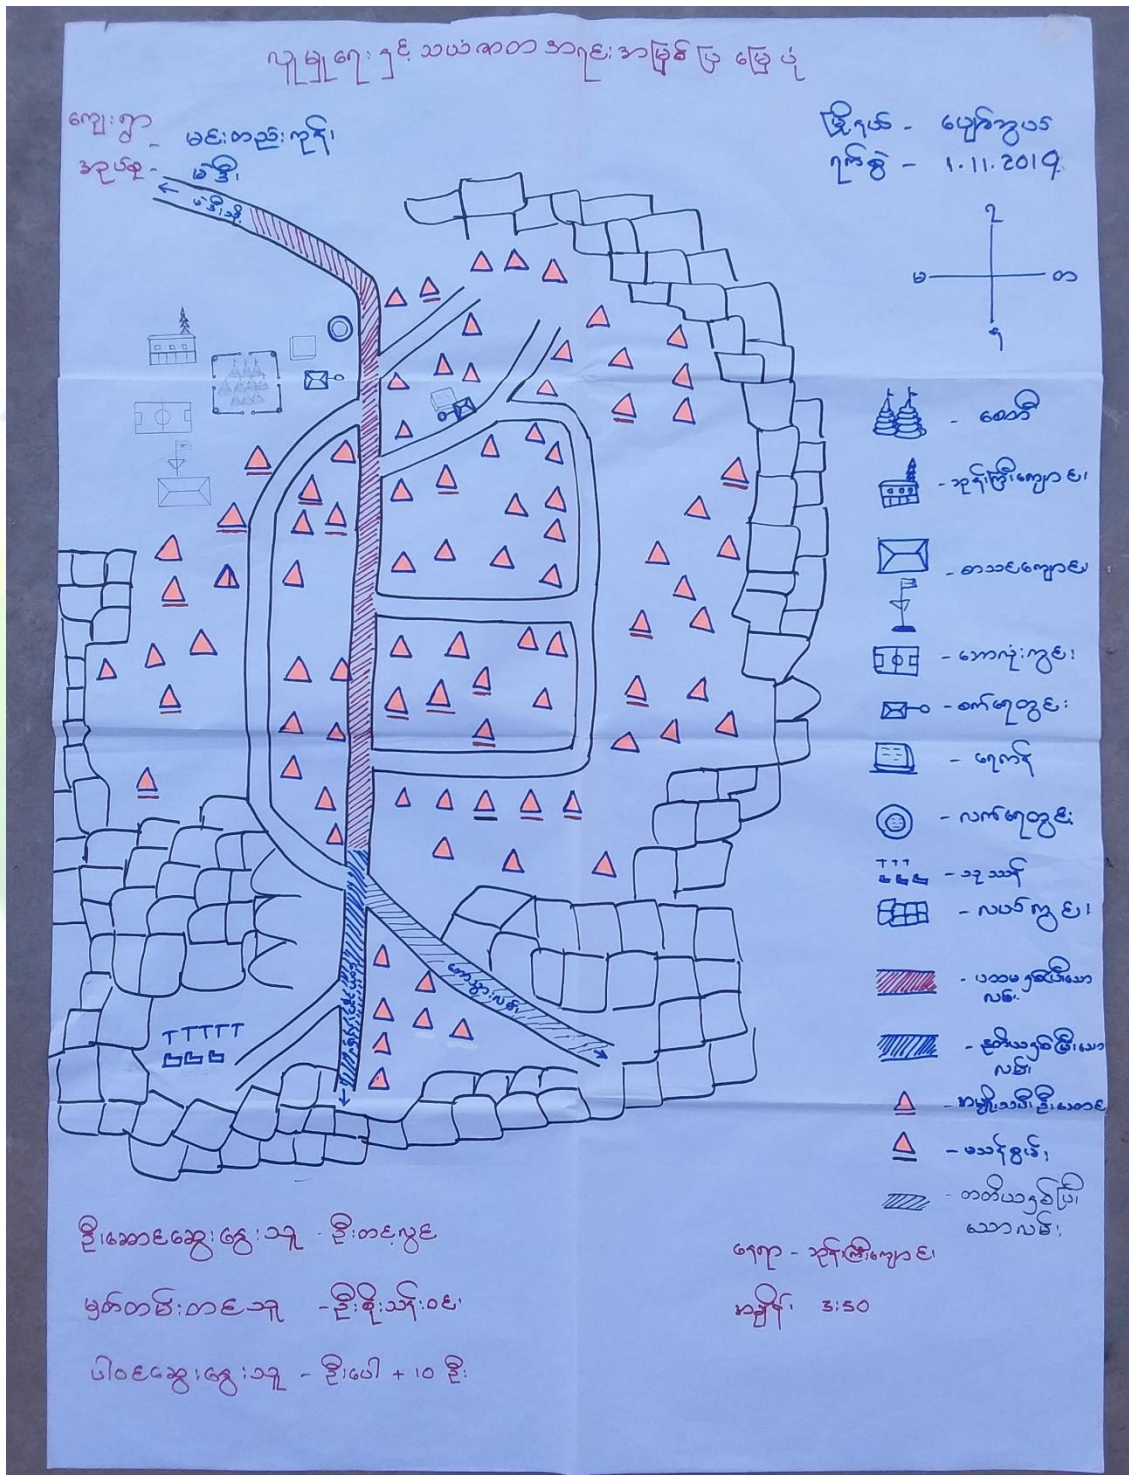 လူမှုရေး နှင့် သယံဇာတ အရင်းအမြစ်ပြ မြေပုံ
ကျေးရွာ - မင်းတည်းကုန်း
အုပ်စု -
မြို့နယ် - ပျော်ဘွယ်
ရက်စွဲ - 1.11.2019
မ
တ
- စေတီ
- ဘုန်းကြီးကျောင်း
- စာသင်ကျောင်း
- ဘောလုံးကွင်း
- စက်ရေတွင်း
- ရေကန်
- လက်ရေတွင်း
- သုဿာန်
- လယ်ကွင်း
- ပထမနှစ်ပြီးသော
လမ်း
- ဒုတိယနှစ်ပြီးသော
လမ်း
- အမျိုးသမီးဦးဆောင်
- မသန်စွမ်း
- တတိယနှစ်ပြီး
သောလမ်း
ဦးဆောင်ဆွေးနွေးသူ - ဦးတင့်လွင်
မှတ်တမ်းတင်သူ - ဦးစိုးသန်းဝင်း
ပါဝင်ဆွေးနွေးသူ - ဦးပေါ + ၁၀ ဦး
နေရာ - ဘုန်းကြီးကျောင်း
အချိန် 3:50